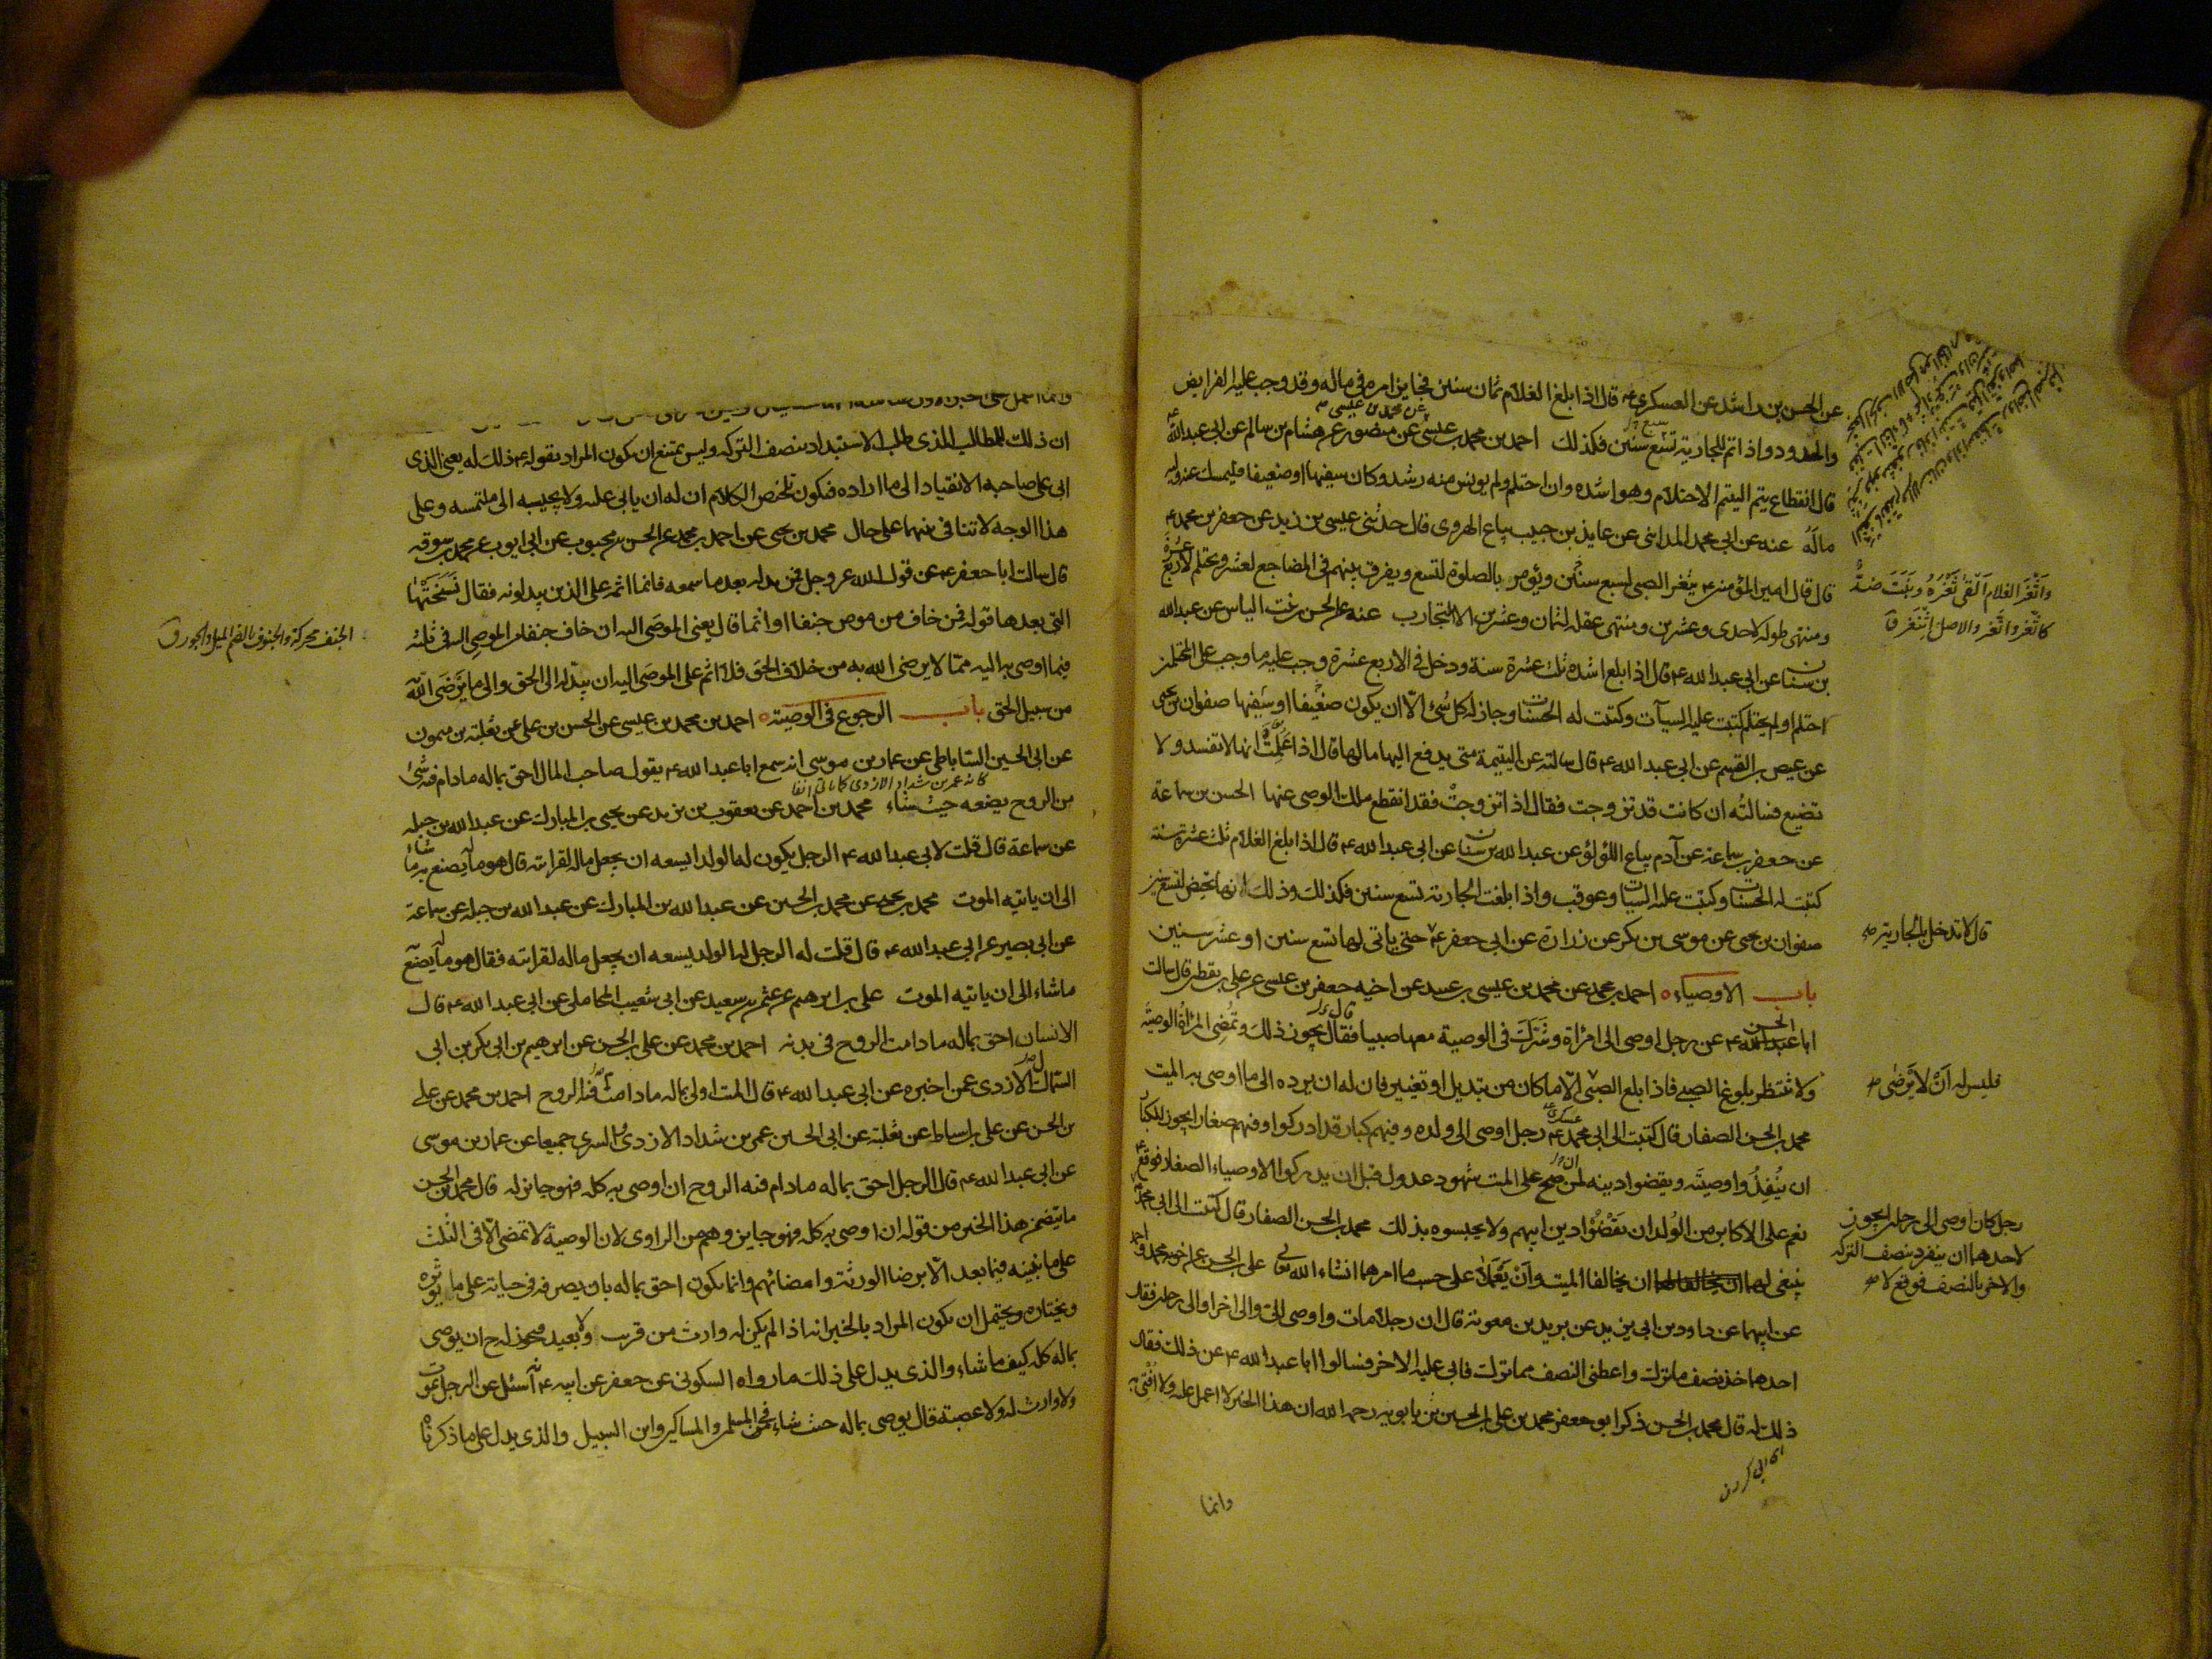 عن الحسن بن راشد عن العسكرى ع قال اذا بلغ الغلام ثمان سنين فجايز امره فى ماله وقد وجب عليه الفرايض
والحدود واذا تم للجارية تسع سنين فكذلك احمد بن محمد بن عيسى عن منصور عن هشام بن سالم عن ابى عبدالله ع
قال انقطاع يتم اليتيم الاحتلام وهو اشده وان احتلم ولم يونس منه رشد وكان سفيها او ضعيفا فليمسك عنه وليه
ماله عنه عن ابى محمد المدائنى عن عايذ بن حبيب بياع الهروى قال حدثنى عيسى بن زيد عن جعفر بن محمد ع
قال قال امير المؤمنين ع يثغر الصبى لسبع سنين ويؤمر بالصلوة لتسع ويفرق بينهم فى المضاجع لعشر ويحتلم لاربع عشرة
ومنتهى طوله لاحدى وعشرين ومنتهى عقله لثمان وعشرين الا التجارب عنه عن الحسن بن بنت الياس عن عبدالله
بن سنان عن ابى عبد الله ع قال اذا بلغ اشده ثلث عشرة سنة ودخل فى الاربع عشرة وجب عليه ما وجب على المحتلمين
احتلم او لم يحتلم كتبت عليه السيآت وكتبت له الحسنات وجاز له كل شئ الا ان يكون ضعيفا او سفيها صفوان بن يحيى
عن عيص بن القسم عن ابى عبد الله ع قال سالته عن اليتيمة متى يدفع اليها مالها قال اذا علمت انها لا تفسد ولا
تضيع فسالته ان كانت قد تزوجت فقال اذا تزوجت فقد انقطع ملك الوصى عنها الحسن بن سماعة
عن جعفر بن سماعة عن آدم بياع اللؤلؤ عن عبد الله بن سنان عن ابى عبد الله ع قال اذا بلغ الغلام ثلث عشرة سنة
كتبت له الحسنات وكتبت عليه السيئات وعوقب واذا بلغت الجارية تسع سنين فكذلك وذلك انها تحيض لتسع سنين
صفوان بن يحيى عن موسى بن بكر عن زرارة عن ابى جعفر ع حتى ياتى لها تسع سنين او عشر سنين
باب الاوصياء احمد بن محمد عن محمد بن عيسى بن عبيد عن اخيه جعفر بن عيسى عن على بن يقطين قال سالت
ابا الحسن ع عن رجل اوصى الى امراة وشرك فى الوصية معها صبيا فقال يجوز ذلك وتمضى المراة الوصية
ولا تنتظر بلوغ الصبى فاذا بلغ الصبى الا ما كان من تبديل او تغيير فان له ان يرده الى ما اوصى به الميت
محمد بن الحسن الصفار قال كتبت الى ابى محمد ع رجل اوصى الى ولده وفيهم كبار قد ادركوا وفيهم صغار ايجوز للكبار
ان ينفذوا وصيته ويقضوا دينه لمن صح على الميت شهود عدول قبل ان يدركوا الاوصياء الصغار فوقع ع
نعم على الاكابر من الولدان يقضوا دين ابيهم ولا يحبسوه بذلك محمد بن الحسن الصفار قال كتبت الى ابى محمد ع
ينبغى لهما ان يخالفا الميت وان يعملا على حسب ما امرهما انشاء الله على بن الحسن عن اخويه محمد واحمد
عن ابيهما عن داود بن ابى يزيد عن بريد بن معوية قال ان رجلا مات واوصى الى والى اخر او الى رجلين فقال
احدهما خذ نصف ما ترك واعطنى النصف مما ترك فابى عليه الاخر فسالوا ابا عبد الله ع عن ذلك فقال
ذلك له قال محمد بن الحسن ذكر ابو جعفر محمد بن على بن الحسين بن بابويه رحمه الله ان هذا الخبر لا اعمل عليه ولا افتى به
وانما
واثغر الغلام القى ثغره ونبت ضد
كاثغر واتغر والاصل اثتغر ق
قال لا تدخل بالجارية صح
فليس له ان لا يرضى صح
رجل كان اوصى الى رجلين ايجوز
لاحدهما ان ينفرد بنصف التركة
والاخر بالنصف فوقع لا صح
ان ذلك للطالب الذى طلب الاستبداد بنصف التركة وليس يمتنع ان يكون المراد بقوله ع ذلك له يعنى الذى
ابى على صاحبه الانقياد الى ما اراده فيكون تلخيص الكلام ان له ان يابى عليه ولا يجيبه الى ملتمسه وعلى
هذا الوجه لا تنافى بينهما على حال محمد بن يحيى عن احمد بن محمد عن الحسن بن محبوب عن ابى ايوب عن محمد بن سوقه
قال سالت ابا جعفر ع عن قول الله عز وجل فمن بدله بعد ما سمعه فانما اثمه على الذين يبدلونه فقال نسختها
التى بعدها قوله فمن خاف من موص جنفا او اثما قال يعنى الموصى اليه ان خاف جنفا من الموصى اليه فى ثلثه
فيما اوصى به اليه مما لا يرضى الله به من خلاف الحق فلا اثم على الموصى اليه ان يبدله الى الحق والى ما يرضى الله
من سبيل الحق باب الرجوع فى الوصية احمد بن محمد بن عيسى عن الحسن بن على عن ثعلبة بن ميمون
عن ابى الحسين الساباطى عن عمار بن موسى انه سمع ابا عبد الله ع يقول صاحب المال احق بماله ما دام فيه شئ
كانه عمر بن شداد الازدى كما ياتى انفا
من الروح يضعه حيث شاء محمد بن احمد عن يعقوب بن يزيد عن يحيى بن المبارك عن عبد الله بن جبلة
عن سماعة قال قلت لابى عبد الله ع الرجل يكون له الولد ايسعه ان يجعل ماله لقرابته قال هو ماله يصنع به ما شاء
الى ان ياتيه الموت محمد بن يحيى عن محمد بن الحسين عن عبد الله بن المبارك عن عبد الله بن جبلة عن سماعة
عن ابى بصير عن ابى عبد الله ع قال قلت له الرجل له الولد يسعه ان يجعل ماله لقرابته فقال هو ماله يصنع
ما شاء الى ان ياتيه الموت على بن ابرهيم عن عثمن بن سعيد عن ابى شعيب المحاملى عن ابى عبد الله ع قال
الانسان احق بماله ما دامت الروح فى بدنه احمد بن محمد عن على بن الحسن عن ابرهيم بن ابى بكر بن ابى
السمال الازدى عمن اخبره عن ابى عبد الله ع قال الميت اولى بماله ما دامت فيه الروح احمد بن محمد عن على
بن الحسن عن على بن اسباط عن ثعلبة عن ابى الحسين عمر بن شداد الازدى والسرى جميعا عن عمار بن موسى
عن ابى عبد الله ع قال الرجل احق بماله ما دام فيه الروح ان اوصى به كله فهو جائز له قال محمد بن الحسن
ما يتضمن هذا الخبر من قوله ان اوصى به كله فهو جايز وهم من الراوى لان الوصية لا تمضى الا فى الثلث
على ما نبينه فيما بعد الا برضا الورثة وامضائهم وانما يكون احق بماله بان يصرفه فى حياته على ما يؤثره
ويختاره ويحتمل ان يكون المراد بالخبر انه اذا لم يكن له وارث من قريب ولا بعيد فيجوز له ح ان يوصى
بماله كله كيف ما شاء والذى يدل على ذلك ما رواه السكونى عن جعفر عن ابيه ع انه سئل عن الرجل يموت
ولا وارث له ولا عصبة قال يوصى بماله حيث شاء فى المسلمين والمساكين وابن السبيل والذى يدل على ما ذكرناه
الجنف محركة والجنوف بالضم الميل والجور ق